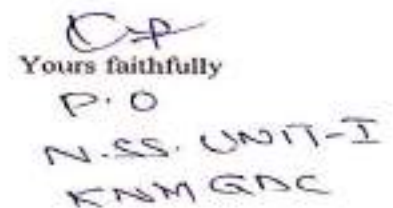 Yours faithfully
P.O
N.SS. UNIT-I
KNM GDC